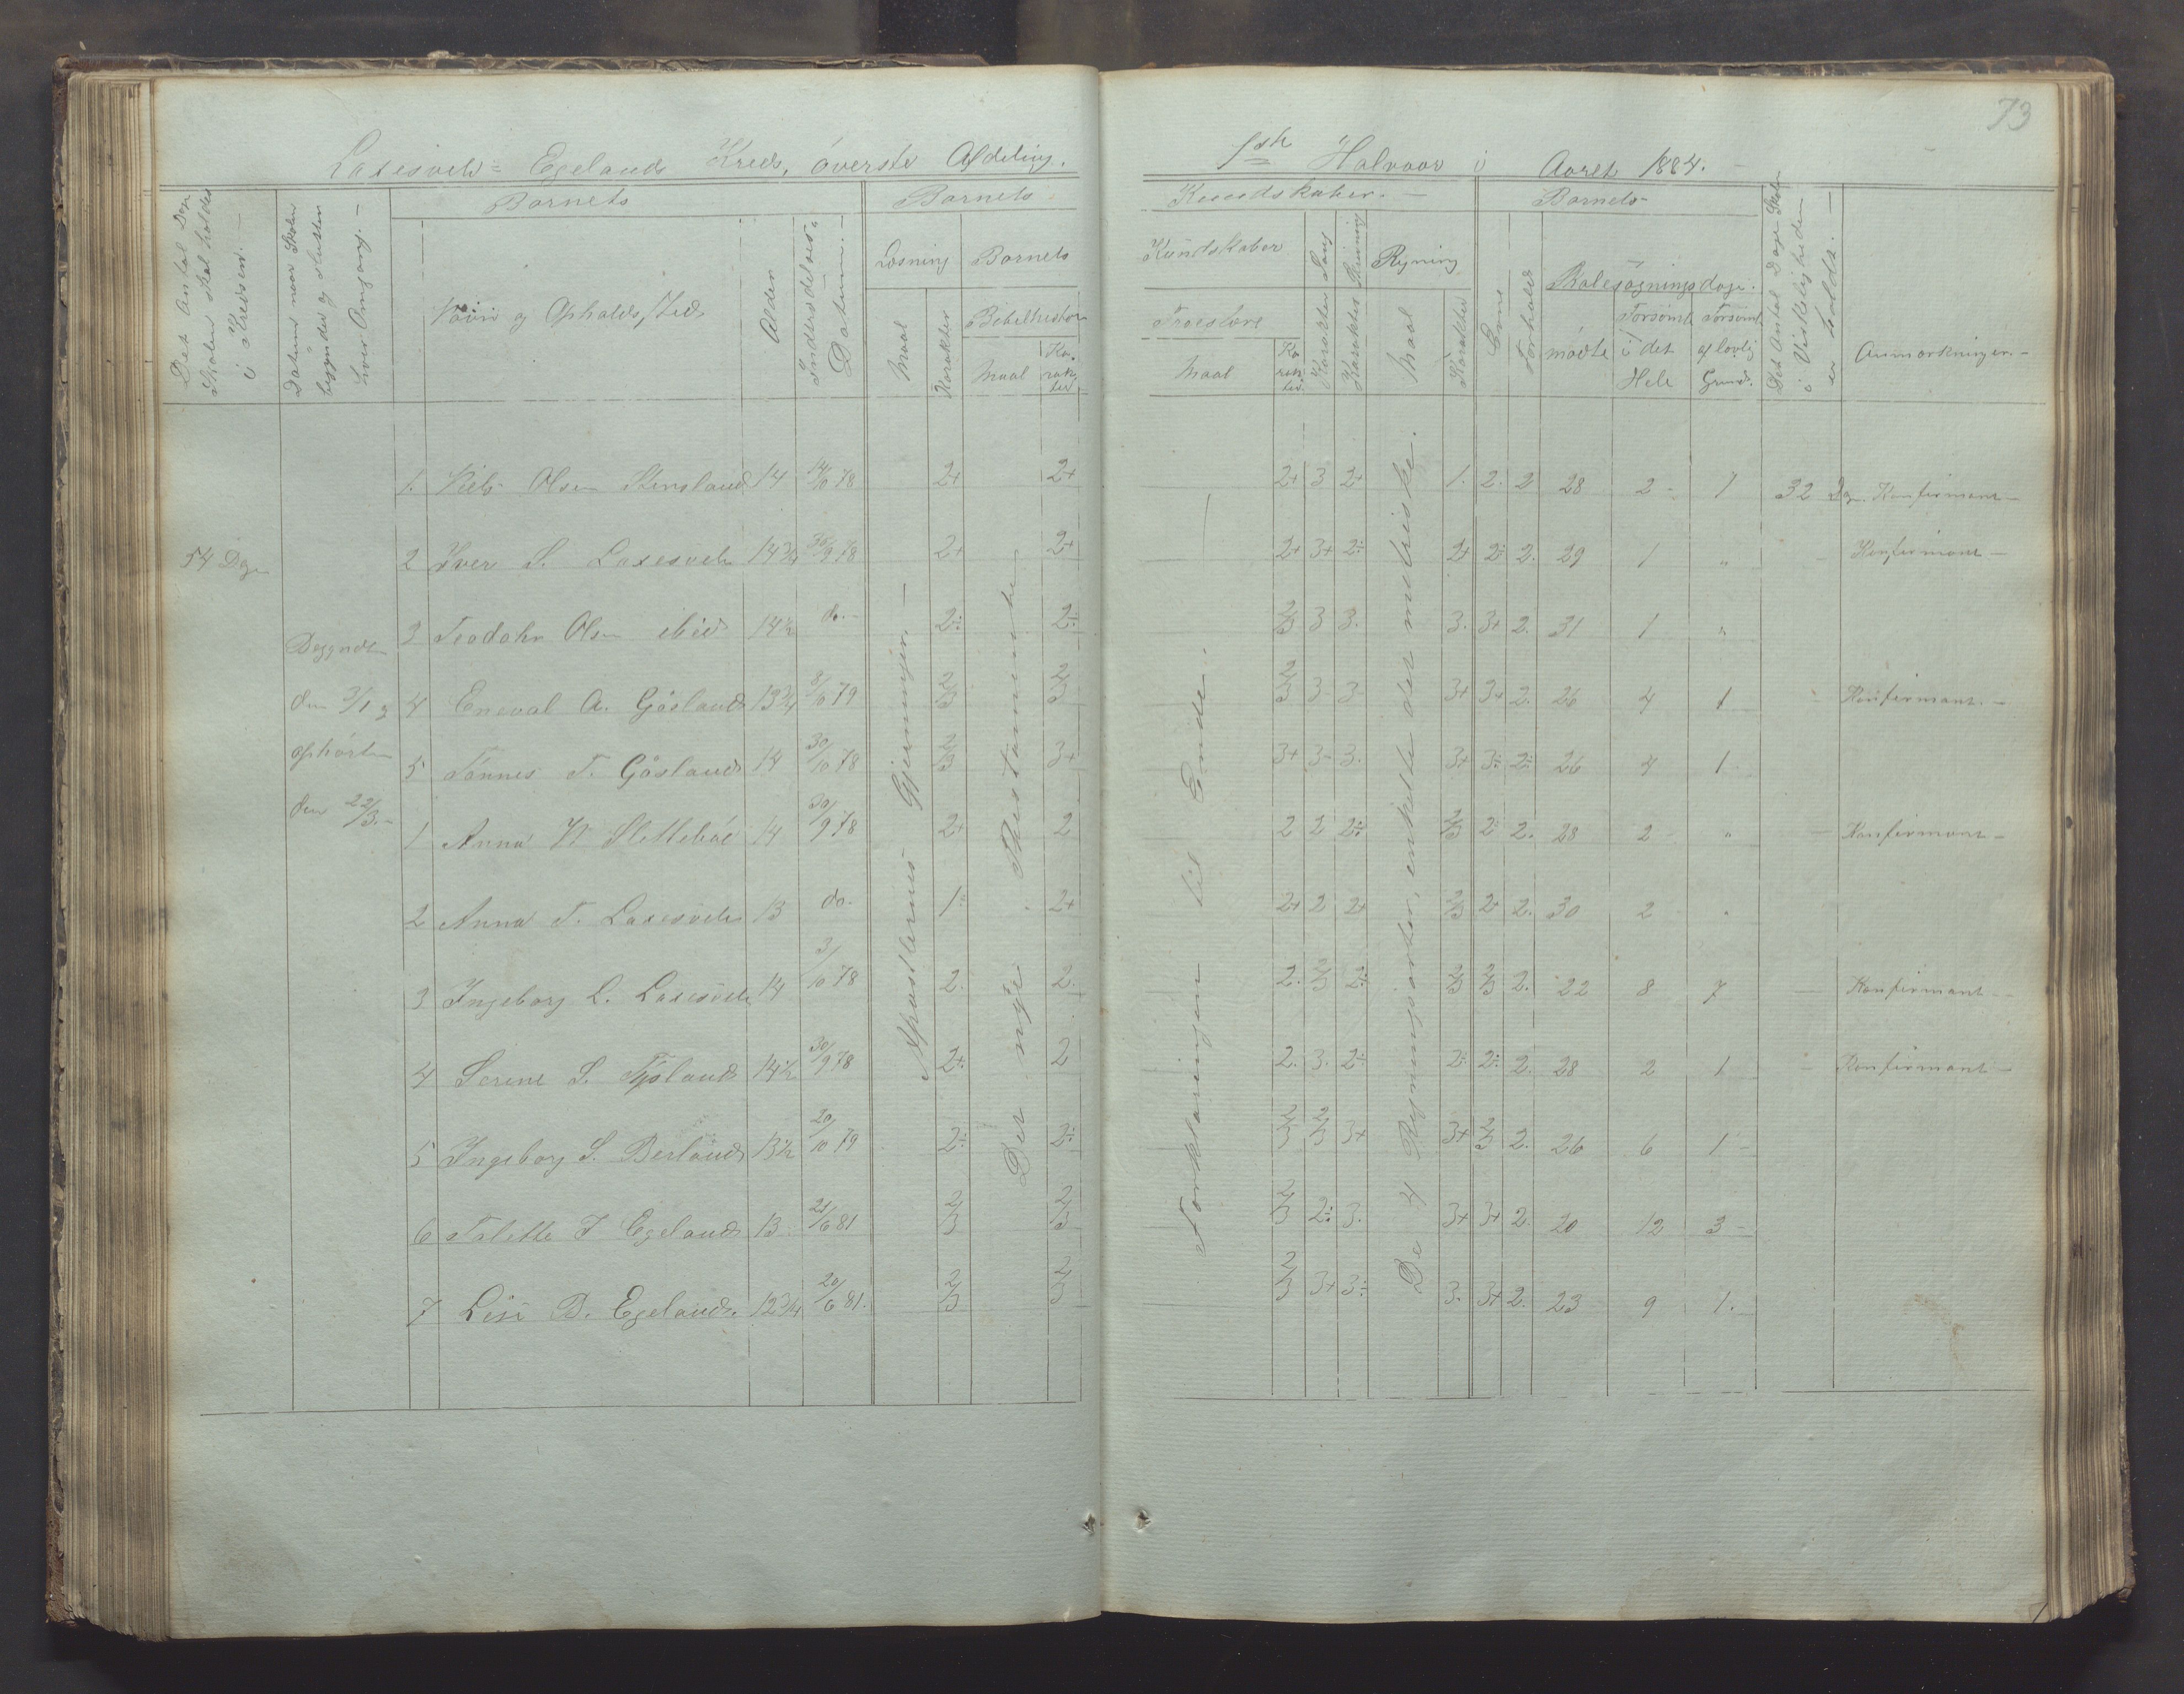 73
Laxesvels- Egelands Kreds, överste Afdeling.
1ste Halvaar i Aaret 1884.
Det Antal Dage Skolen skal holdes i Kredsen. —
Datum naar Skolen begynder og slutter hver Omgang. —
Barnets
Navn og Opholds Sted
Alder
Indtrædelses- Datum. —
Barnets
Læsning
Maal
Karakter
Barnets
Bibelhistorie
Maal
Karakter
Kundskaber. —
Kundskaber
Troeslære
Maal
Karakter
Karakter Sang
Karakter Skrivning
Regning
Maal
Karakter
Evne
Forhold
Barnets
Skolesøgningsdage.
mødte
Forsømt i det Hele
Forsømt af lovlig Grund.
Det Antal Dage Skolen i Virkeligheden er holdt. —
Anmærkninger. —
54 Dage
Begyndte
den 3/1 og
ophörte
den 22/3. —
Apostlernes Gjerninger. —
Det nye Testamente —
Forklaringen til Ende. —
De 4 Regningsarter, enkelte det mulriske.
1. Niels Olsen Stensland 14 14/10 78 2+ 2+ 2+ 3 2+ 1. 2. 2 28 2 - 1 32 Dage. Konfirmant —
2 Iver S. Laxesvele 14 3/4 30/9 78 2+ 2+ 2+ 3+ 2÷ 2+ 2÷ 2. 29 1 " Konfirmant —
3 Teodohr Olsen ibid 14 1/2 do. — 2÷ 2÷ 2/3 3 3. 3. 3+ 2. 31 1 "
4 Eneval A. Gösland 13 3/4 8/10 79 2/3 2/3 2/3 3 3 3+ 3+ 2. 26 4 1 Konfirmant. —
5 Tönnes T. Gösland 14 30/10 78 2/3 3+ 3+ 3 3. 3+ 3÷ 2÷ 26 4 1
1 Anna N Sletteböe 14 30/9 78 2+ 2 2 2 2÷ 2/3 2 2. 28 2 " Konfirmant —
2 Anna T. Laxesvele 13 do. 1÷ 2+ 2+ 2 2+ 2/3 2+ 2. 30 2 "
3 Ingeborg L. Laxesvele 14 3/10 78 2. 2. 2. 2/3 2÷ 2/3 2/3 2. 22 8 7 Konfirmant —
4 Serine S. Tysland 14 1/2 30/9 78 2÷ 2 2. 3. 2÷ 2÷ 2÷ 2. 28 2 1 Konfirmant —
5 Ingeborg S. Berland 13 1/2 20/10 79 2÷ 2÷ 2/3 2/3 3+ 3+ 2/3 2. 26 6 1
6 Talette T Egeland 13 21/6 81 2/3 2/3 2/3 2÷ 3. 3+ 3+ 2. 20 12 3
7 Lise B. Egeland. 12 3/4 20/6 81. 2/3 2/3 2/3 3+ 3÷ 3. 3+ 2. 23 9 1.